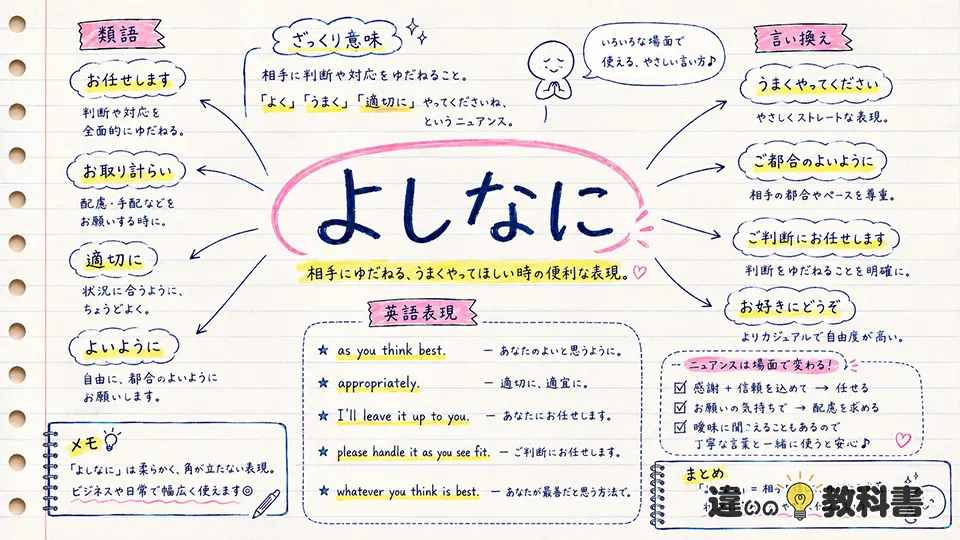 類語
お任せします
判断や対応を
全面的にゆだねる。
お取り計らい
配慮・手配などを
お願いする時に。
適切に
状況に合うように、
ちょうどよく。
よいように
自由に、都合のよいように
お願いします。
ざっくり意味
相手に判断や対応をゆだねること。
「よく」「うまく」「適切に」やってくださいね、
というニュアンス。
いろいろな場面で
使える、やさしい言い方♪
よしなに
相手にゆだねる、うまくやってほしい時の便利な表現。♡
言い換え
うまくやってください
やさしくストレートな表現。
ご都合のよいように
相手の都合やペースを尊重。
ご判断にお任せします
判断をゆだねることを明確に。
お好きにどうぞ
よりカジュアルで自由度が高い。
英語表現
★ as you think best. ー あなたのよいと思うように。
★ appropriately. ー 適切に、適宜に。
★ I'll leave it up to you. ー あなたにお任せします。
★ please handle it as you see fit. ー ご判断にお任せします。
★ whatever you think is best. ー あなたが最善だと思う方法で。
ニュアンスは場面で変わる!
☑ 感謝 + 信頼を込めて → 任せる
☑ お願いの気持ちで → 配慮を求める
☑ 曖昧に聞こえることもあるので
丁寧な言葉と一緒に使うと安心♪
メモ
「よしなに」は柔らかく、角が立たない表現。
ビジネスや日常で幅広く使えます◎
まとめ
= 相
違いの教科書